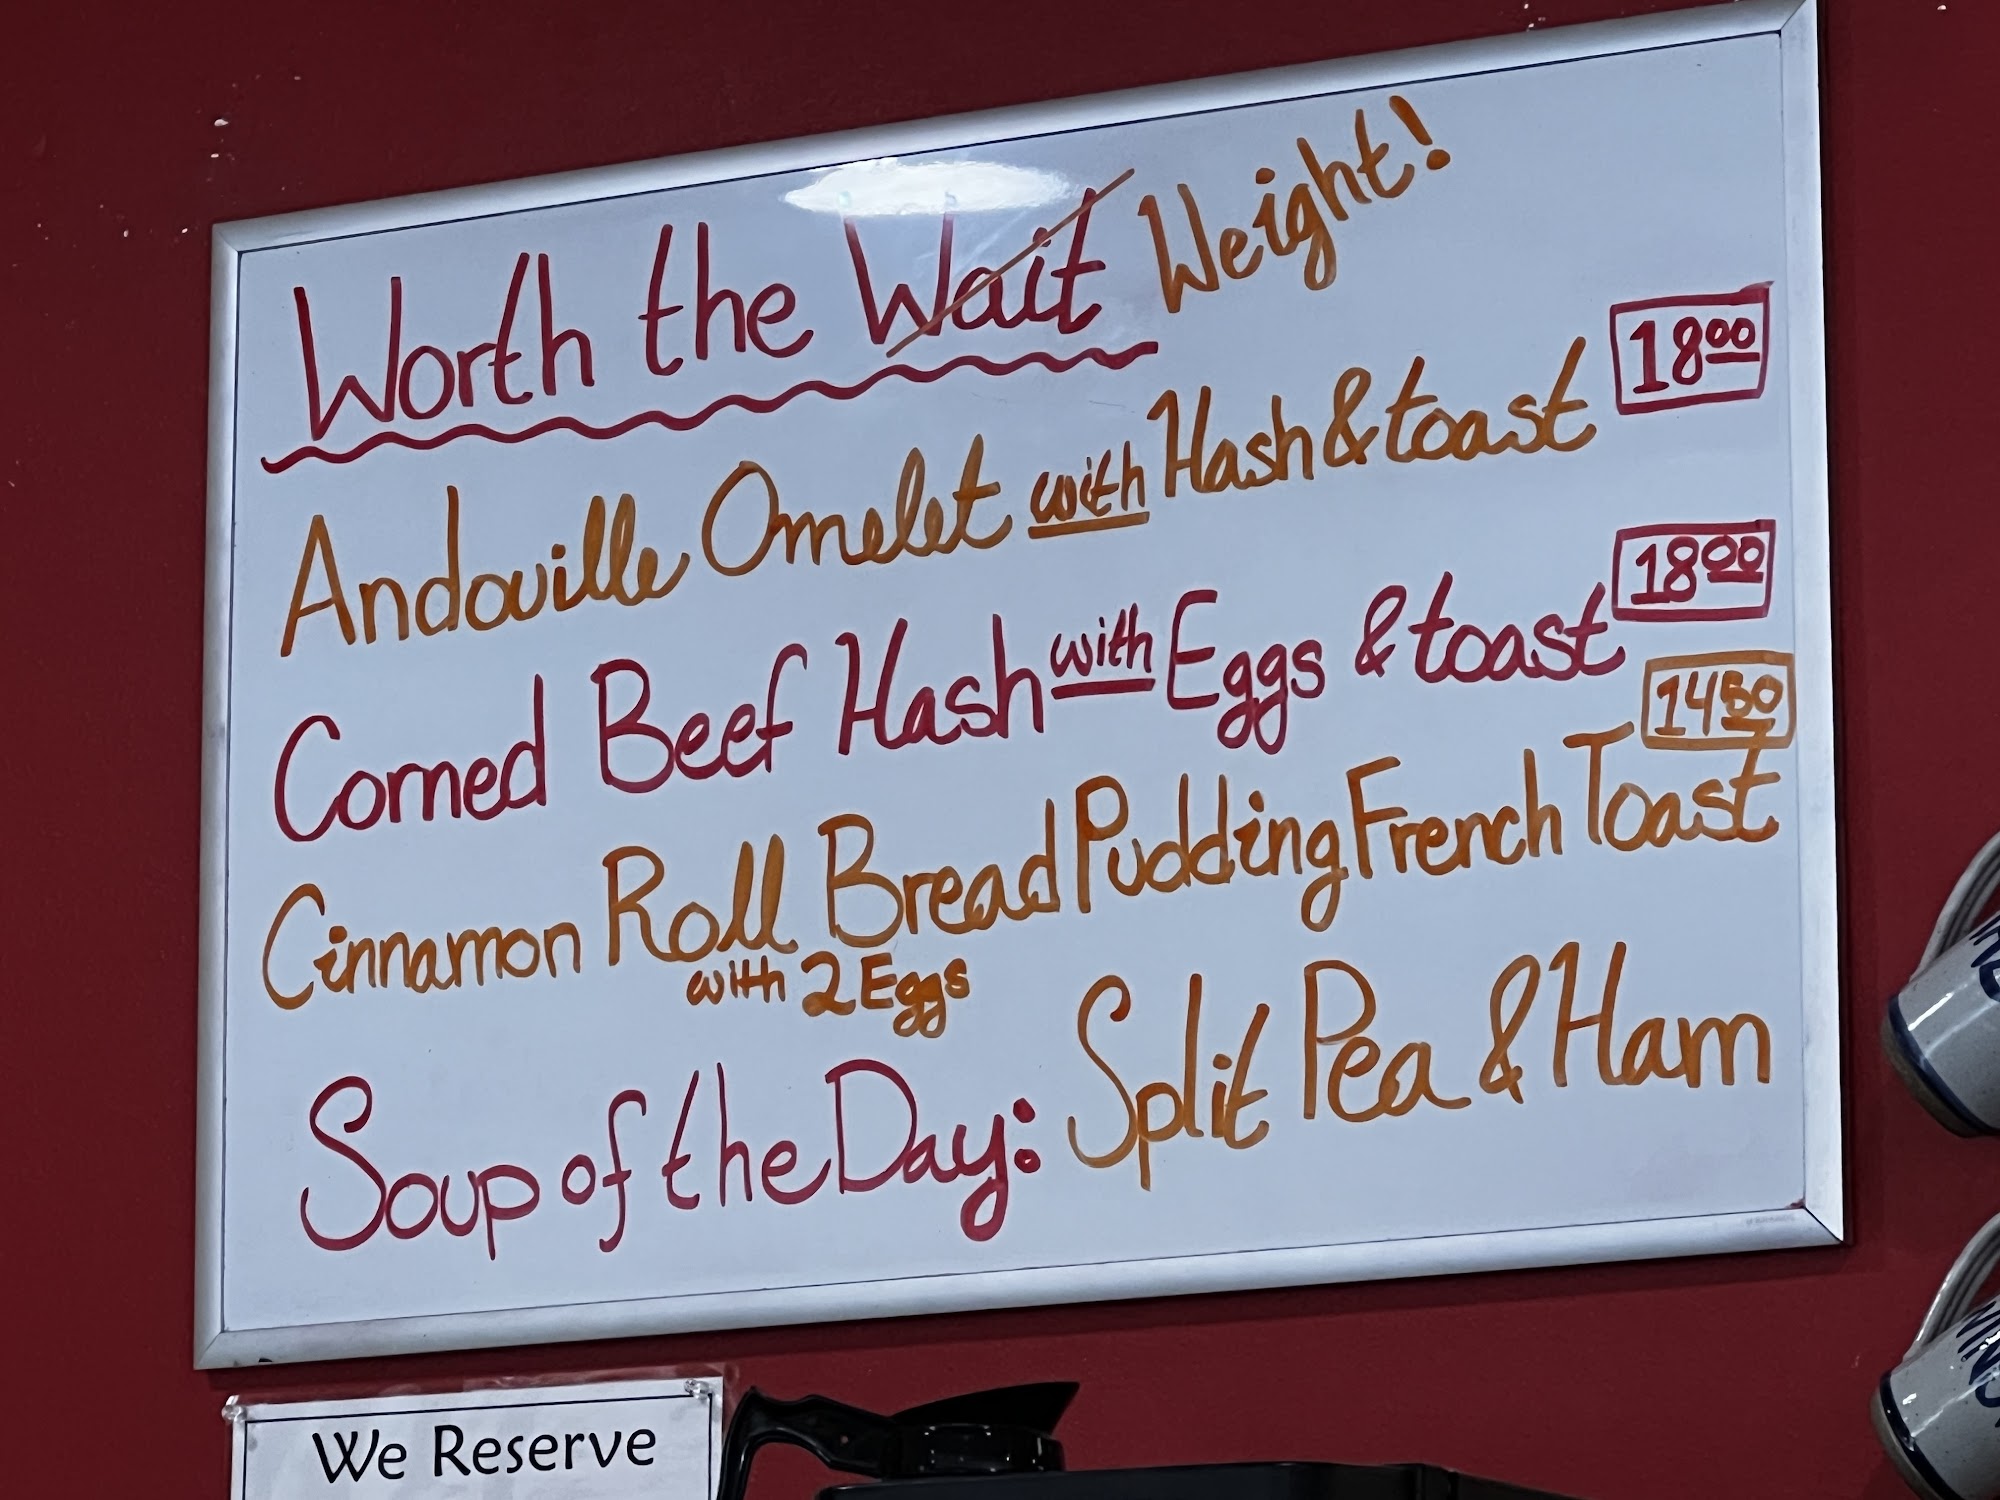 Worth the Wait Weight!
Andouille Omelet with Hash & toast 18.00
Corned Beef Hash with Eggs & toast 18.00
Cinnamon Roll Bread Pudding French Toast 14.50
with 2 Eggs
Soup of the Day: Split Pea & Ham
We Reserve